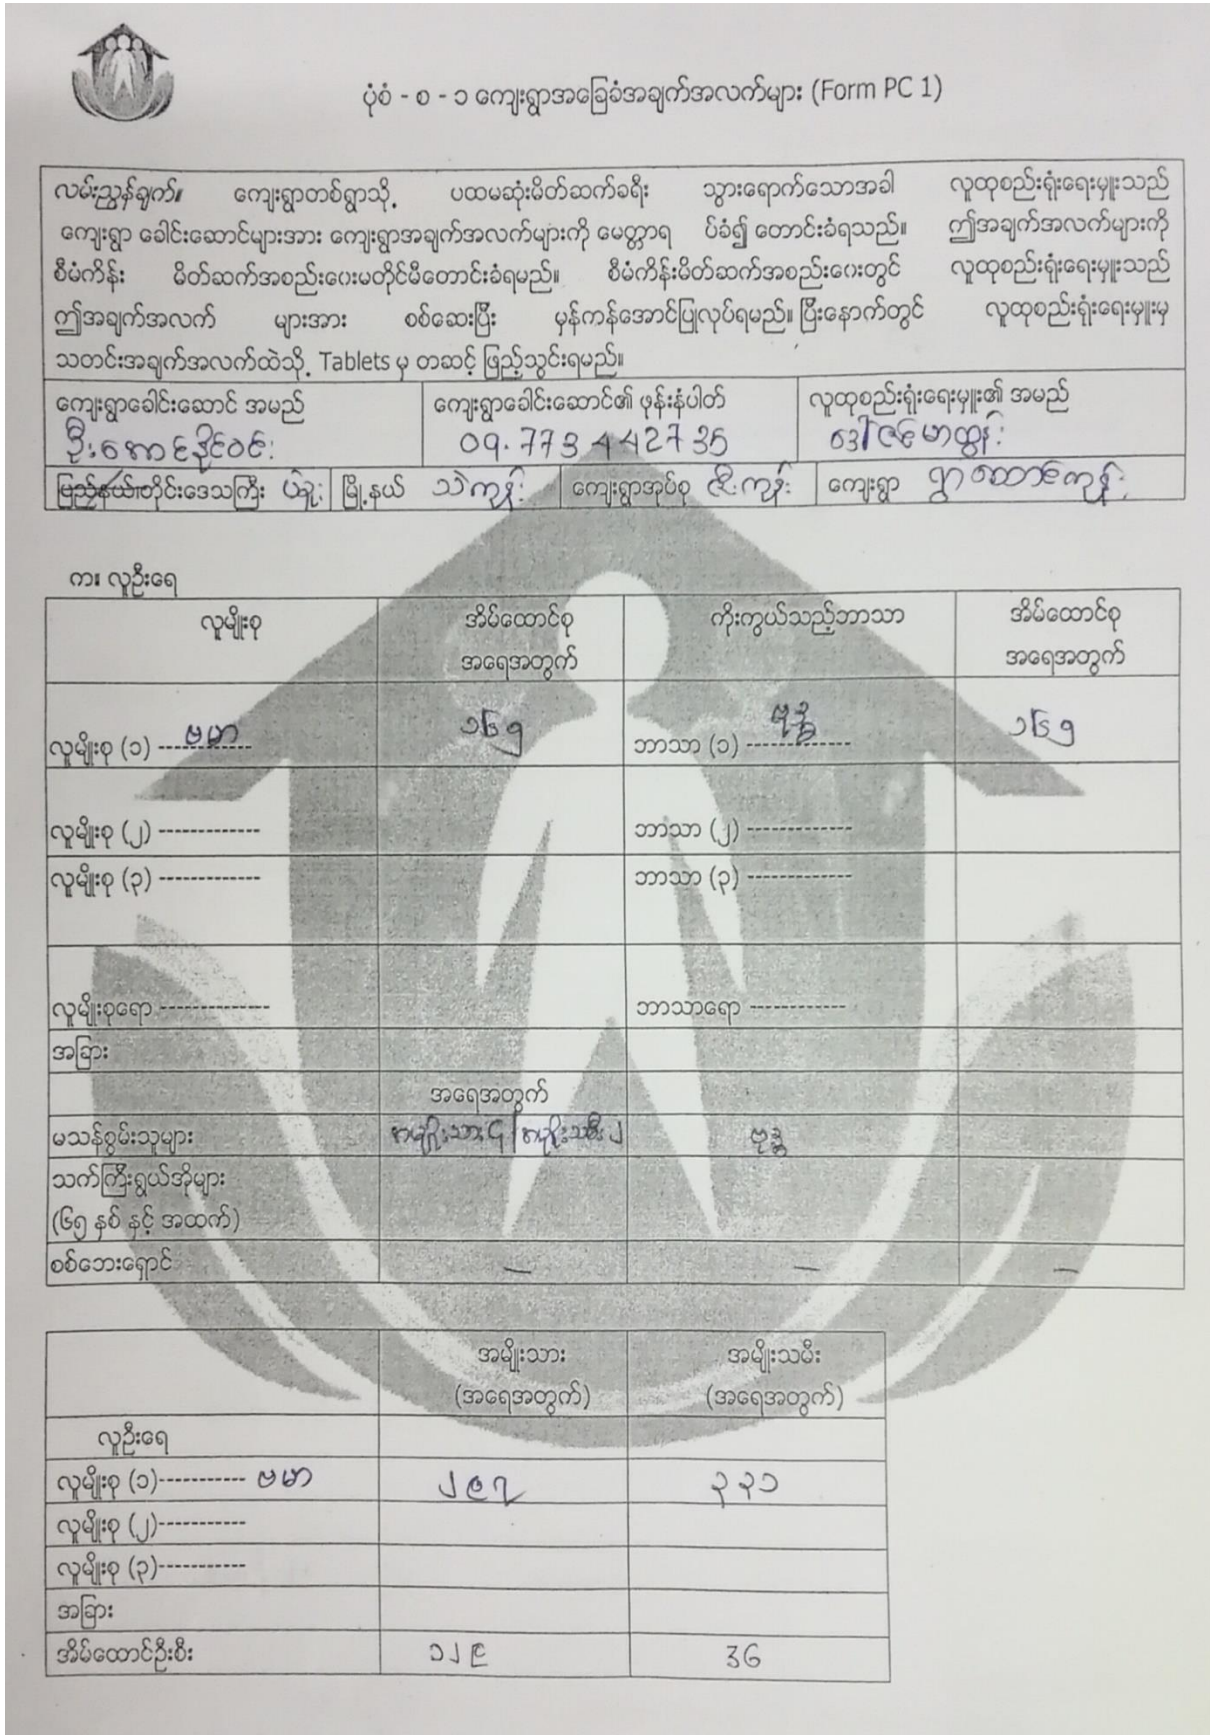 ပုံစံ - စ - ၁ ကျေးရွာအခြေခံအချက်အလက်များ (Form PC 1)
လမ်းညွှန်ချက်။ ကျေးရွာတစ်ရွာသို့ ပထမဆုံးမိတ်ဆက်ခရီး သွားရောက်သောအခါ လူထုစည်းရုံးရေးမှူးသည်
ကျေးရွာ ခေါင်းဆောင်များအား ကျေးရွာအချက်အလက်များကို မေတ္တာရ ပ်ခံ၍ တောင်းခံရသည်။ ဤအချက်အလက်များကို
စီမံကိန်း မိတ်ဆက်အစည်းဝေးမတိုင်မီတောင်းခံရမည်။ စီမံကိန်းမိတ်ဆက်အစည်းဝေးတွင် လူထုစည်းရုံးရေးမှူးသည်
ဤအချက်အလက် များအား စစ်ဆေးပြီး မှန်ကန်အောင်ပြုလုပ်ရမည်။ ပြီးနောက်တွင် လူထုစည်းရုံးရေးမှူးမှ
သတင်းအချက်အလက်ထဲသို့ Tablets မှ တဆင့် ဖြည့်သွင်းရမည်။
ကျေးရွာခေါင်းဆောင် အမည် ကျေးရွာခေါင်းဆောင်၏ ဖုန်းနံပါတ် လူထုစည်းရုံးရေးမှူး၏ အမည်
ဦးအောင်ဒိုင်ဝင်း 09.773442735 ဒေါ်ဇင်မာထွန်း
ပြည်နယ်/တိုင်းဒေသကြီး ပဲခူး မြို့နယ် သဲကုန်း ကျေးရွာအုပ်စု ဇီးကုန်း ကျေးရွာ ရွာထောင်ကုန်း
က။ လူဦးရေ
လူမျိုးစု အိမ်ထောင်စု ကိုးကွယ်သည့်ဘာသာ အိမ်ထောင်စု
အရေအတွက် အရေအတွက်
လူမျိုးစု (၁) ----------- ဗမာ ၁၆၅ ဘာသာ (၁) ------------- ဗုဒ္ဓ ၁၆၅
လူမျိုးစု (၂) ------------- ဘာသာ (၂) -------------
လူမျိုးစု (၃) ------------- ဘာသာ (၃) -------------
လူမျိုးစုရော -------------- ဘာသာရော ------------
အခြား
အရေအတွက်
မသန်စွမ်းသူများ အမျိုးသား ၄ / အမျိုးသမီး ၂ ဗုဒ္ဓ
သက်ကြီးရွယ်အိုများ
(၆၅ နှစ် နှင့် အထက်)
စစ်ဘေးရှောင် — — —
အမျိုးသား အမျိုးသမီး
(အရေအတွက်) (အရေအတွက်)
လူဦးရေ
လူမျိုးစု (၁)----------- ဗမာ ၂၉၇ ၃၃၁
လူမျိုးစု (၂)-----------
လူမျိုးစု (၃)-----------
အခြား
အိမ်ထောင်ဦးစီး ၁၂၉ 36